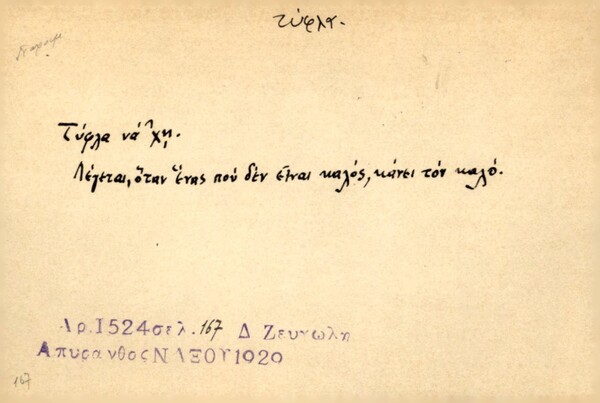 τύφλα.
Τύφλα νά ̓χῃ.
Λέγεται, ὅταν ἕνας πού δέν εἶναι καλός, κάνει τόν καλό.
Αρ.1524σελ.167 Δ Ζευγωλη
ΑπυρανθοςΝΑΞΟΥ1920
167